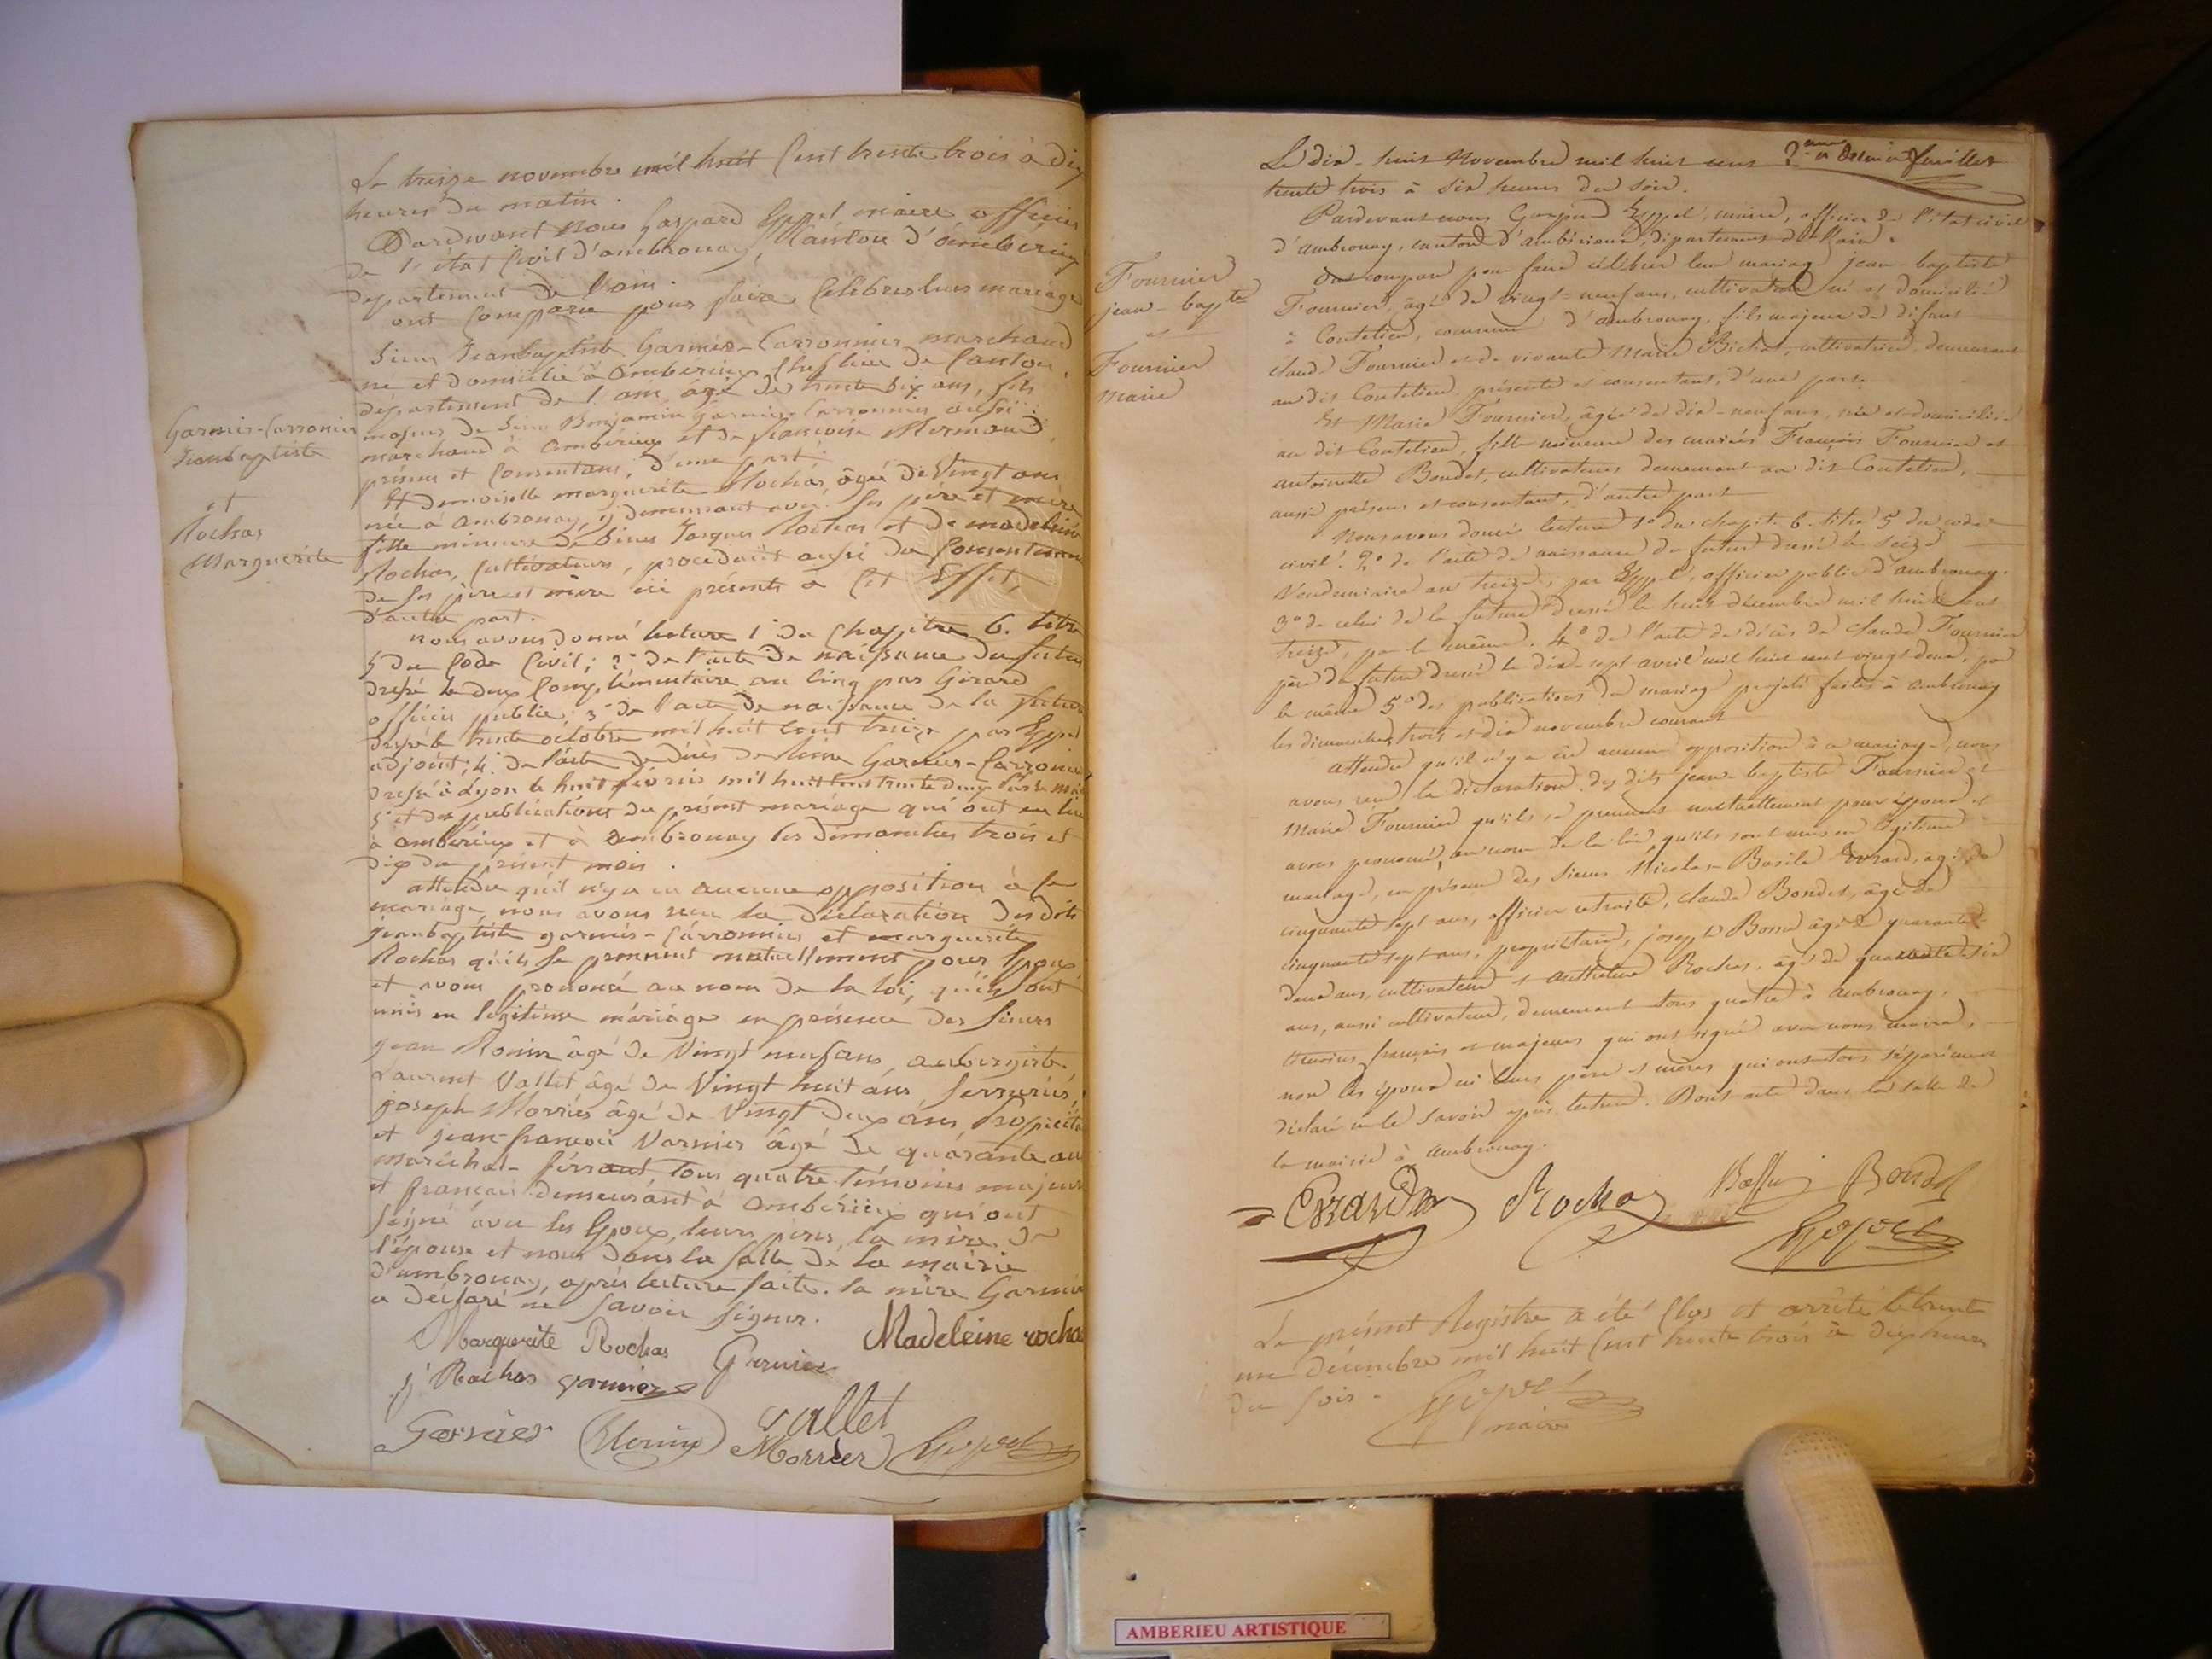 Le treize novembre mil huit Cent trente trois à dix
heures du matin.
Pardevant nous Gaspard Eppel, maire officier
de l'état Civil d'ambronay, Canton d'ambérieux
département de l'ain.
ont Comparu pour faire Célébrer leur mariage
Sieur Jeanbaptiste Garnier-Carronnier marchand
né et domicilié à ambérieux Cheflieu de Canton,
département de l'ain âgé de trente six ans, fils
majeur de Sieur Benjamin Garnier-Carronnier aussi
marchand à ambérieux et de françoise Mermand
présens et Consentans, d'une part.
Et demoiselle marguerite Rochas, âgé de Vingt ans
née à ambronay, y demeurant avec Ses père et mère
fille mineure de Sieur Jacques Rochas et de madeleine
Rochas, Cultivateurs, procédant aussi du Consentement
de Ses père et mère ici présents à Cet Effet,
d'autre part.
nous avons donné lecture 1° du Chapitre 6. titre
5 du Code Civil; 2° de l'acte de naissance du futur
dressé le deux Complémentaire an Cinq par Girard
officier public; 3° de l'acte de naissance de la future
dressé le trente octobre mil huit Cent treize par Eppel
adjoint; 4° de l'acte de décès de Garnier-Carronnier
dressé à Lyon le huit février mil huit Cent trente deux
5° et des publications du présent mariage qui ont eu lieu
à ambérieux et à ambronay les dimanches trois et
dix du présent mois.
attendu qu'il n'y a eu aucune opposition à Ce
mariage, nous avons reçu la déclaration des dits
Jeanbaptiste garnier-Carronnier et marguerite
Rochas qu'ils Se prennent mutuellement pour Epoux
et avons prononcé au nom de la loi, qu'ils Sont
unis en légitime mariage en présence des Sieurs
jean Monin âgé de Vingt neuf ans aubergiste
Laurent Vallet âgé de Vingt huit ans Serrurier,
joseph Morrier âgé de Vingt deux ans,
et jean-françois Varnier âgé de quarante ans
maréchal-ferrant tous quatre témoins majeurs
et français demeurant à ambérieux qui ont
Signé avec les Epoux, leurs pères, la mère de
l'épouse et nous dans la Salle de la mairie
d'ambronay, après lecture faite. la mère Garnier
a déclaré ne Savoir Signer.
Marguerite Rochas Garnier Madeleine rochas
J Rochas garnier
Garnier Monin Vallet
Morrier Eppel
Garnier-Carronnier
Jeanbaptiste
et
Rochas
Marguerite
Le dix-huit Novembre mil huit cent 2ème et dernier feuillet
trente trois à six heures du soir.
Pardevant nous Gaspard Eppel, maire, officier de l'état civil
d'ambronay, canton d'ambérieux, département de l'ain.
Ont comparu pour faire célébrer leur mariage jean-baptiste
Fournier, âgé de vingt-neuf ans, cultivateur né et domicilié
à Coutelieu, commune d'ambronay, fils majeur de défunt
claude Fournier et de vivante Marie Bichat, cultivatrice, demeurant
au dit Coutelieu présente et consentant, d'une part.
Et Marie Fournier, âgée de dix-neuf ans, née et domiciliée
au dit Coutelieu, fille mineure des mariés François Fournier et
antoinette Bondet, cultivateurs demeurant au dit Coutelieu,
aussi présens et consentant, d'autre part
Nous avons donné lecture 1° du chapit. 6. titre 5 du code
civil. 2° de l'acte de naissance du futur dressé le seize
Vendemiaire an treize, par Eppel, officier public d'ambronay.
3° de celui de la future dressé le huit décembre mil huit cent
treize, par le même. 4° de l'acte de décès de claude Fournier
père du futur dressé le dix-sept avril mil huit cent vingt deux, par
le même 5° des publications du mariage projeté faites à ambronay
les dimanches trois et dix novembre courant
Attendu qu'il n'y a eu aucune opposition à ce mariage, nous
avons reçu la déclaration des dits jean-baptiste Fournier et
Marie Fournier qu'ils se prennent mutuellement pour époux et
avons prononcé, au nom de la loi, qu'ils sont unis en légitime
mariage, en présence des sieurs Nicolas-Basile Evrard, âgé de
cinquante sept ans, officier retraité, claude Bondet, âgé de
cinquante sept ans, propriétaire, joseph Bossu âgé de quarante
deux ans, cultivateur et anthelme Rochas, âgé de quarante six
ans, aussi cultivateur, demeurant tous quatre à ambronay.
témoins français et majeurs qui ont signé avec nous maire,
non les époux ni leurs père et mères qui ont tous séparément
déclaré ne le savoir après lecture. Dont acte dans la salle de
la mairie à ambronay.
Evrard Rochas Bossu Bondet
Eppel
Le présent Registre a été Clos et arrêté le trente
un décembre mil huit Cent trente trois à dix heures
du Soir.
Eppel
maire
Fournier
jean-bapte
et
Fournier
marie
AMBERIEU ARTISTIQUE